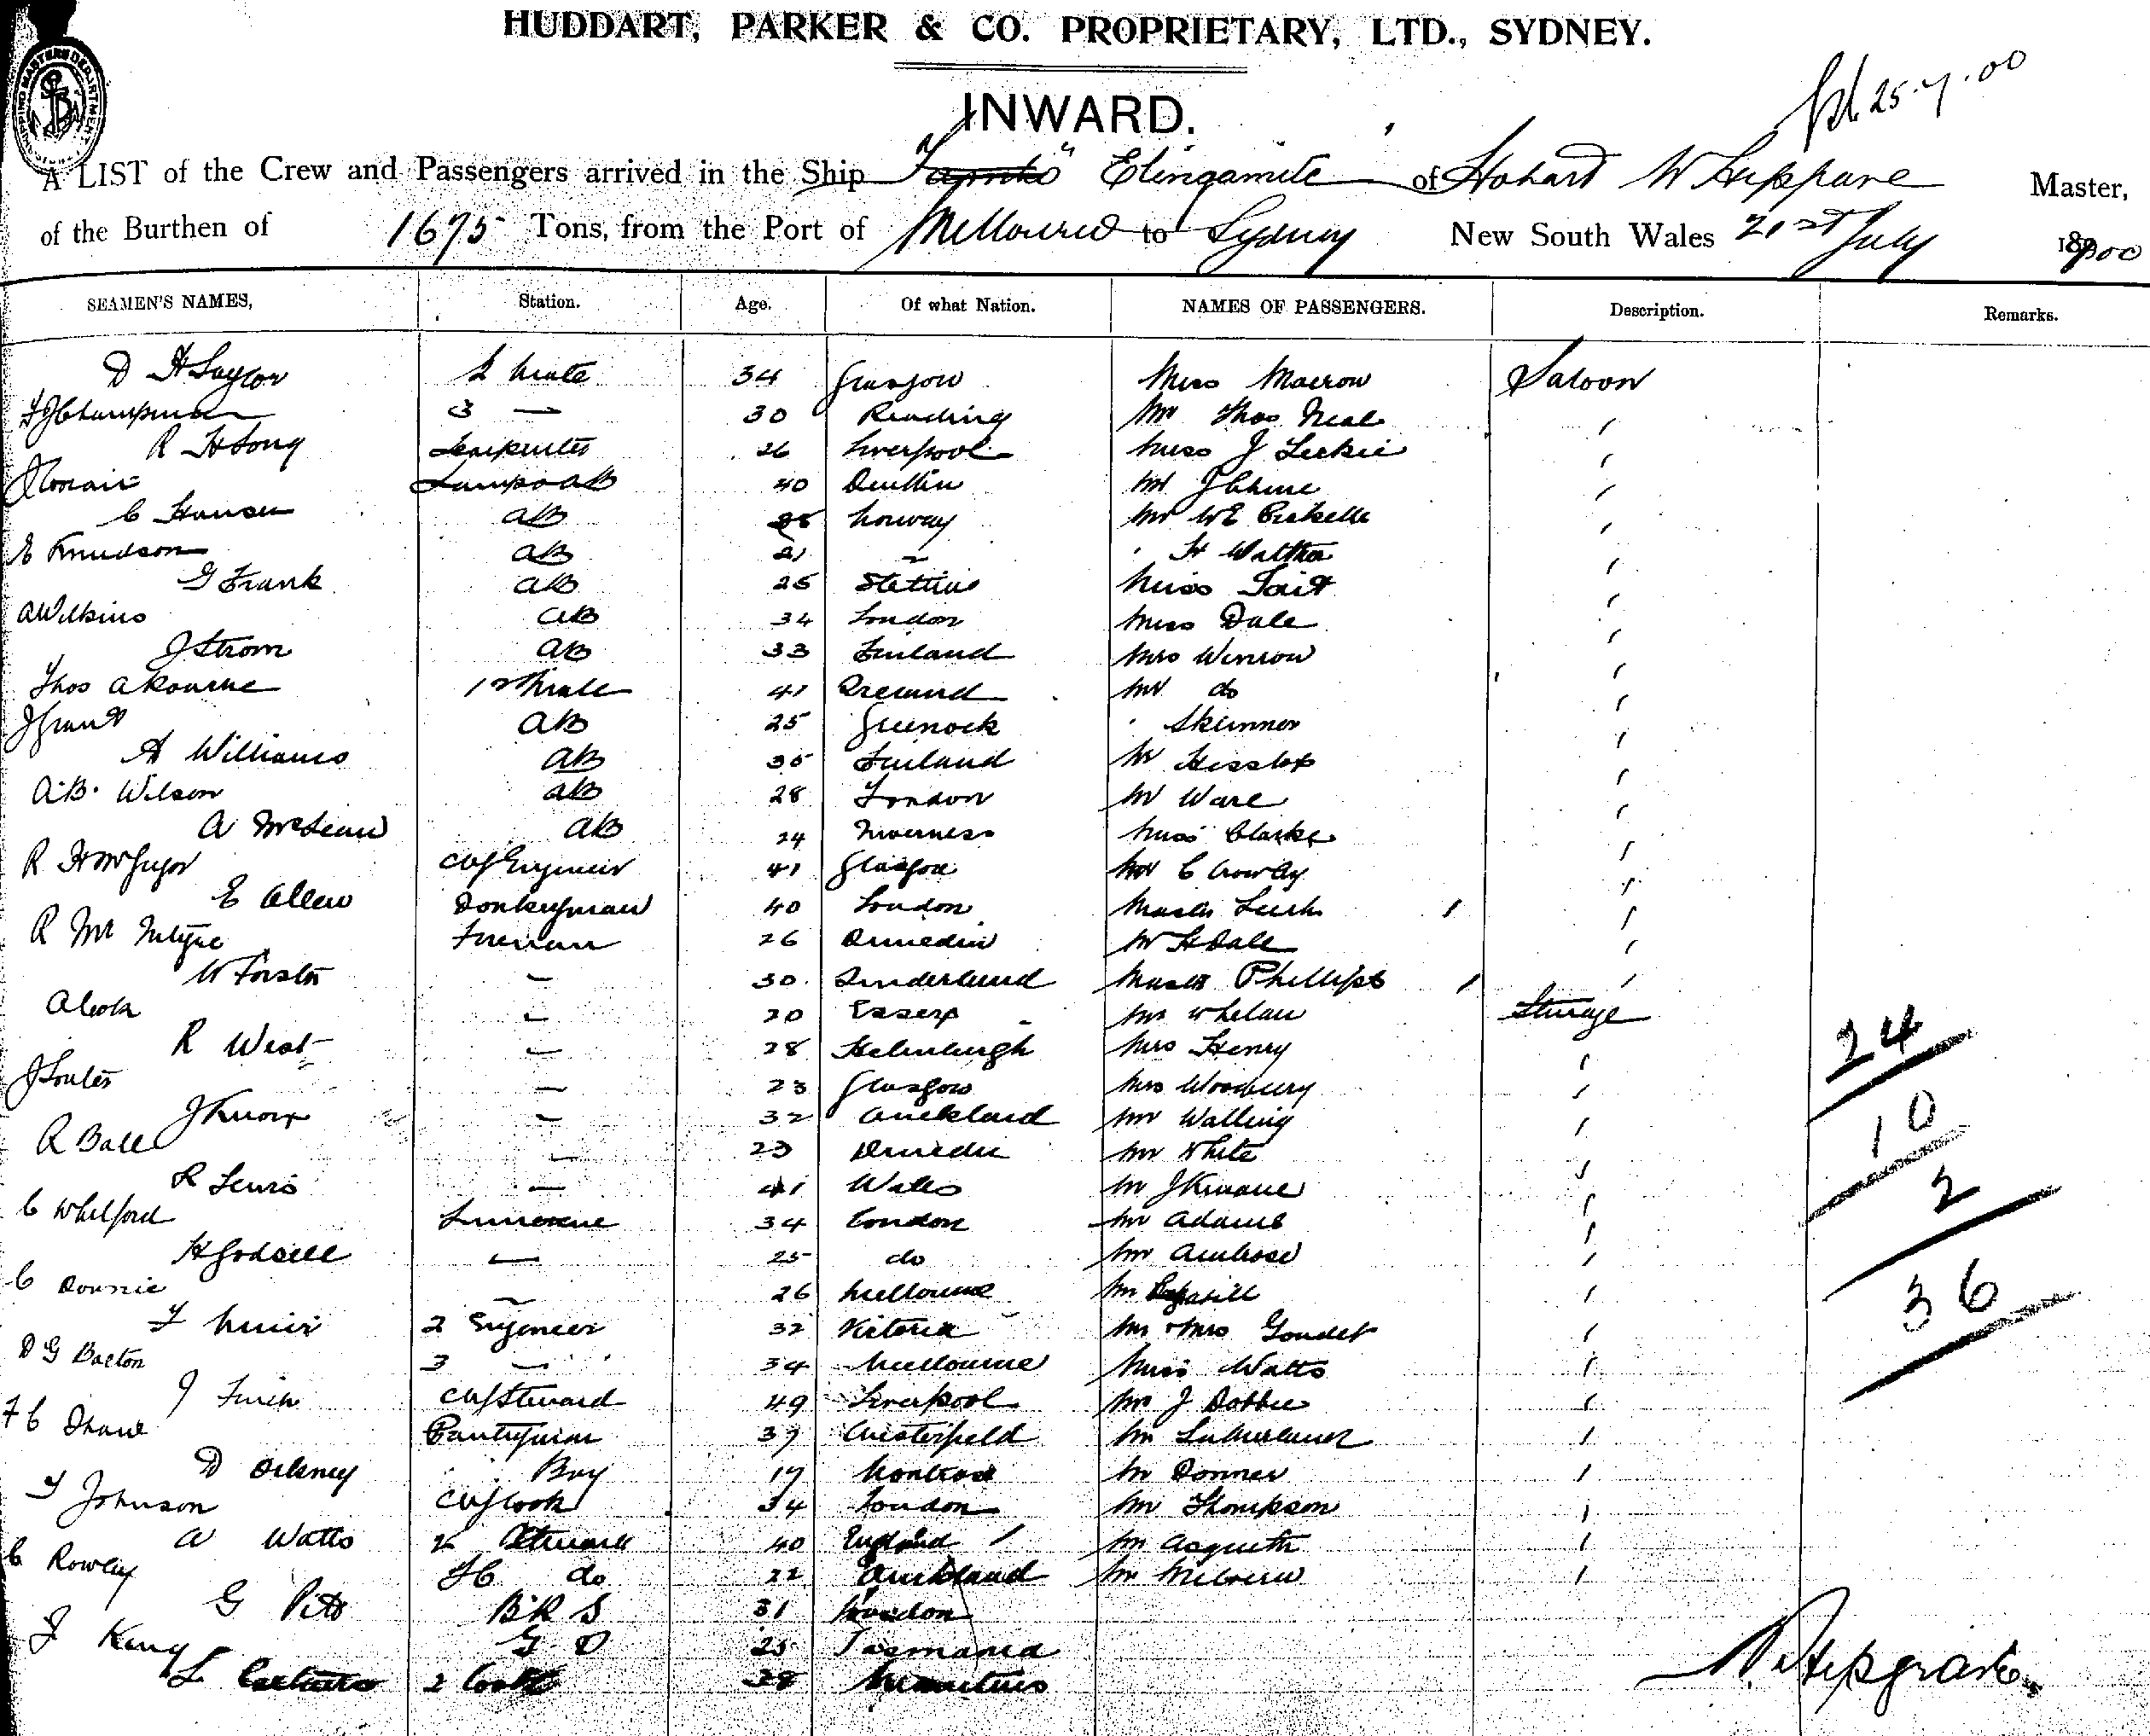 HUDDART, PARKER & CO. PROPRIETARY, LTD., SYDNEY.
25.7.00
INWARD.
A LIST of the Crew and Passengers arrived in the Ship "Elingamite" of Hobart Master,
of the Burthen of 1675 Tons, from the Port of Melbourne to Sydney New South Wales 21st July 1900
SEAMEN'S NAMES, Station. Age. Of what Nation. NAMES OF PASSENGERS. Description. Remarks.
D H Saylor 2 Mate 34 Glasgow Miss Macrow Saloon
Chapman 3 — 30 Reading Mr Thos Neal
R H Long Carpenter 26 Liverpool Miss J Leckie
Lamps AB 40 Dublin Mr
C Hansen AB Norway Mr W E
E Knudson AB 21 H Walther
G Frank AB 25 Stettin Miss Tait
A Wilkins AB 34 London Miss Dale
J Strom AB 33 Finland Mrs Winrow
Thos A Bourne 1st Mate 41 Ireland Mr do
J Grant AB 25 Greenock Skinner
A Williams AB 35 Finland Mr
A.B. Wilson AB 28 London Mr Ware
A McLean AB 24 Inverness Miss Clarke
R H McGregor Chf Engineer 41 Glasgow Mr C Crowley
E Allen Donkeyman 40 London Master
R Mc Intyre Fireman 26 Dunedin Mr H Dale
W Forster — 30 Sunderland Master Phillips
A Cook — 20 Essex Mr Whelan Steerage
R West — 28 Helensburgh Mrs Henry 24
J Souter — 23 Glasgow Mrs Woodbury
J Knox — 32 Auckland Mr Walling 10
R Ball — 23 Dunedin Mr White
R Lewis — 41 Wales Mr J Kinane 2
C Whelford 34 London Mr Adams
H Godsell — 25 do Mr Ambrose
C Downie — 26 Melbourne Mr 36
F Muir 2 Engineer 32 Victoria Mr & Mrs Goudet
D G Barton 3 — 34 Melbourne Miss Watts
J Finch Chf Steward 49 Liverpool Mr J Dobbie
F C Shane Pantryman 37 Chesterfield Mr
D Delaney Boy 17 Montrose Mr Donner
F Johnson Chf Cook 34 London Mr Thompson
A Watts 2 Steward 40 England Mr Asquith
C Rowley FC do 22 Auckland Mr
G Pitt B.R S 31 London
F King G D 25 Tasmania
L 2 Cook 28 Mauritius